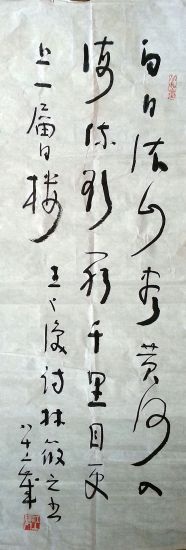 白日依山尽黄河入
海流欲穷千里目更
上一層楼 王之涣诗林筱之书